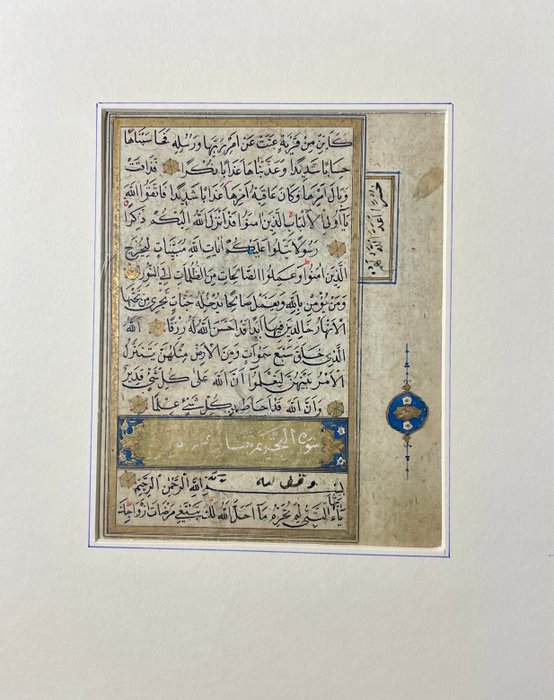 كَأَيِّنْ مِنْ قَرْيَةٍ عَتَتْ عَنْ أَمْرِ رَبِّهَا وَرُسُلِهِ فَحَاسَبْنَاهَا
حِسَابًا شَدِيدًا وَعَذَّبْنَاهَا عَذَابًا نُكْرًا فَذَاقَتْ
وَبَالَ أَمْرِهَا وَكَانَ عَاقِبَةُ أَمْرِهَا عَذَابًا شَدِيدًا فَاتَّقُوا اللَّهَ
يَا أُولِي الْأَلْبَابِ الَّذِينَ آمَنُوا قَدْ أَنْزَلَ اللَّهُ إِلَيْكُمْ ذِكْرًا
رَسُولًا يَتْلُوا عَلَيْكُمْ آيَاتِ اللَّهِ مُبَيِّنَاتٍ لِيُخْرِجَ
الَّذِينَ آمَنُوا وَعَمِلُوا الصَّالِحَاتِ مِنَ الظُّلُمَاتِ إِلَى النُّورِ
وَمَنْ يُؤْمِنْ بِاللَّهِ وَيَعْمَلْ صَالِحًا يُدْخِلْهُ جَنَّاتٍ تَجْرِي مِنْ تَحْتِهَا
الْأَنْهَارُ خَالِدِينَ فِيهَا أَبَدًا قَدْ أَحْسَنَ اللَّهُ لَهُ رِزْقًا اللَّهُ
الَّذِي خَلَقَ سَبْعَ سَمَوَاتٍ وَمِنَ الْأَرْضِ مِثْلَهُنَّ يَتَنَزَّلُ
الْأَمْرُ بَيْنَهُنَّ لِتَعْلَمُوا أَنَّ اللَّهَ عَلَى كُلِّ شَيْءٍ قَدِيرٌ
وَأَنَّ اللَّهَ قَدْ أَحَاطَ بِكُلِّ شَيْءٍ عِلْمًا
سورة التحريم
وقف لله
بِسْمِ اللَّهِ الرَّحْمَنِ الرَّحِيمِ
يَا أَيُّهَا النَّبِيُّ لِمَ تُحَرِّمُ مَا أَحَلَّ اللَّهُ لَكَ تَبْتَغِي مَرْضَاتَ أَزْوَاجِكَ
خسرا اعد الله لهم